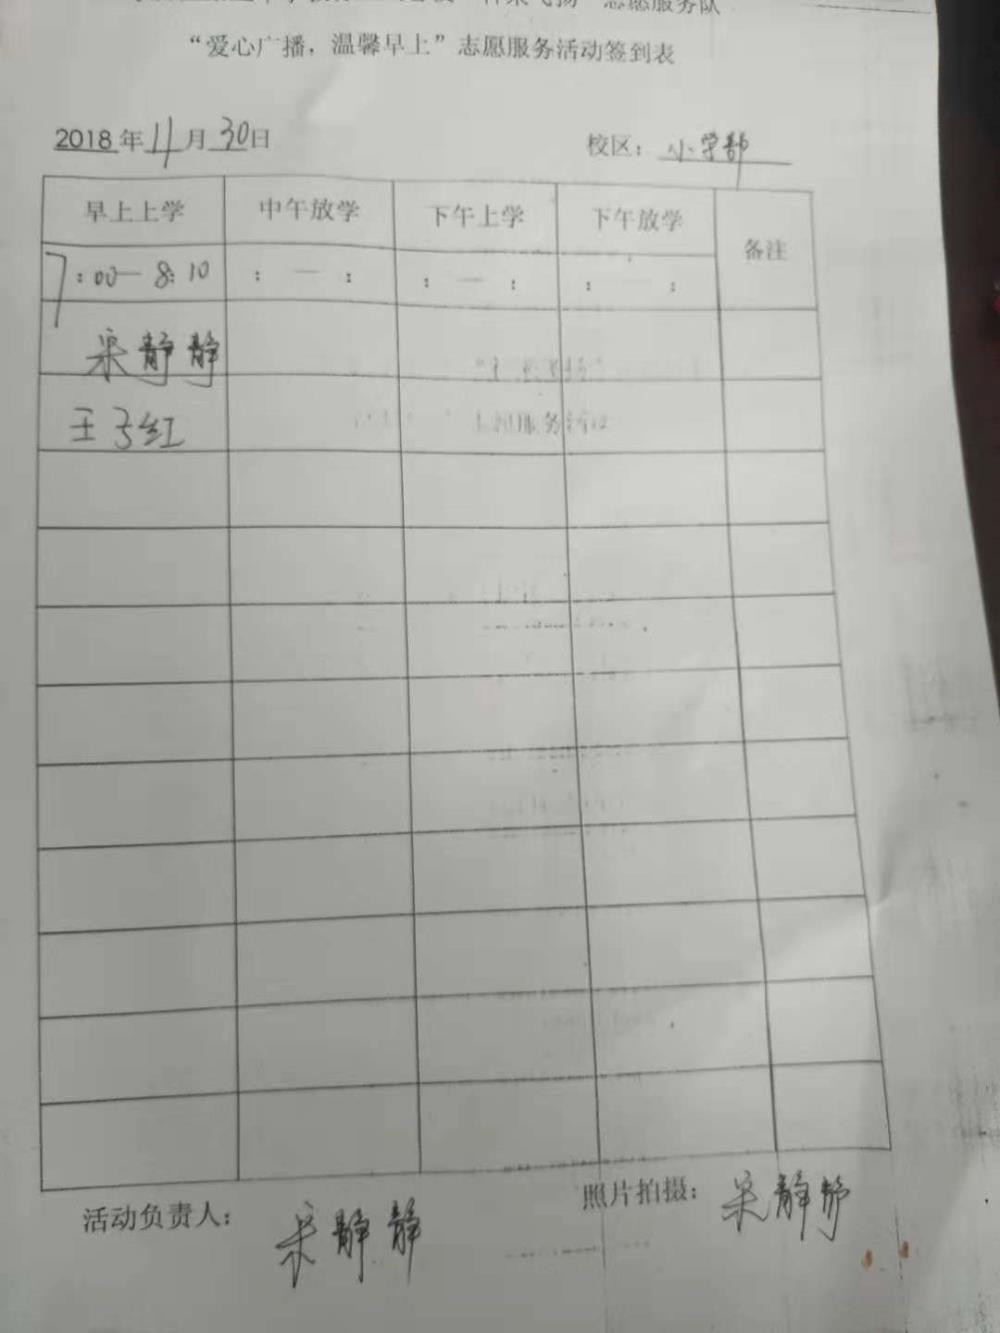 志愿服务队
“爱心广播，温馨早上”志愿服务活动签到表
2018年11月30日 校区：小学部
早上上学 中午放学 下午上学 下午放学 备注
7:00—8:10 : — : : — : : — :
采静静
王子红
活动负责人：采静静 照片拍摄：采静静